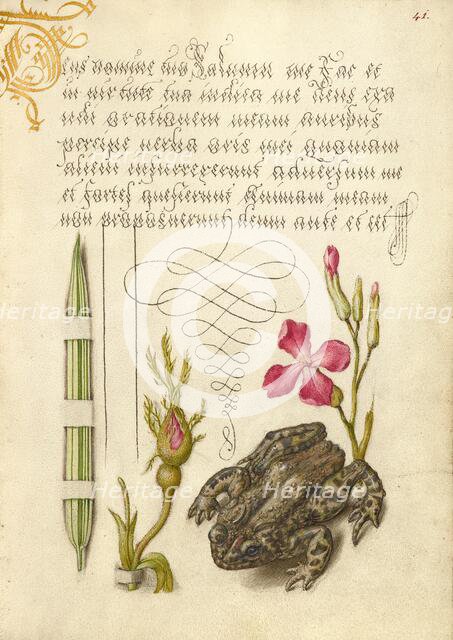 41.
Deus nomine tuo Saluum me Fac et
in virtute tua iudica me Deus exa
udi orationem meam auribus
percipe verba oris mei quoniam
alieni insurrexerunt aduersum me
et fortes quesierunt animam meam
non proposuerunt deum ante et
Heritage
Heritage
Heritage
Heritage
Heritage
Heritage